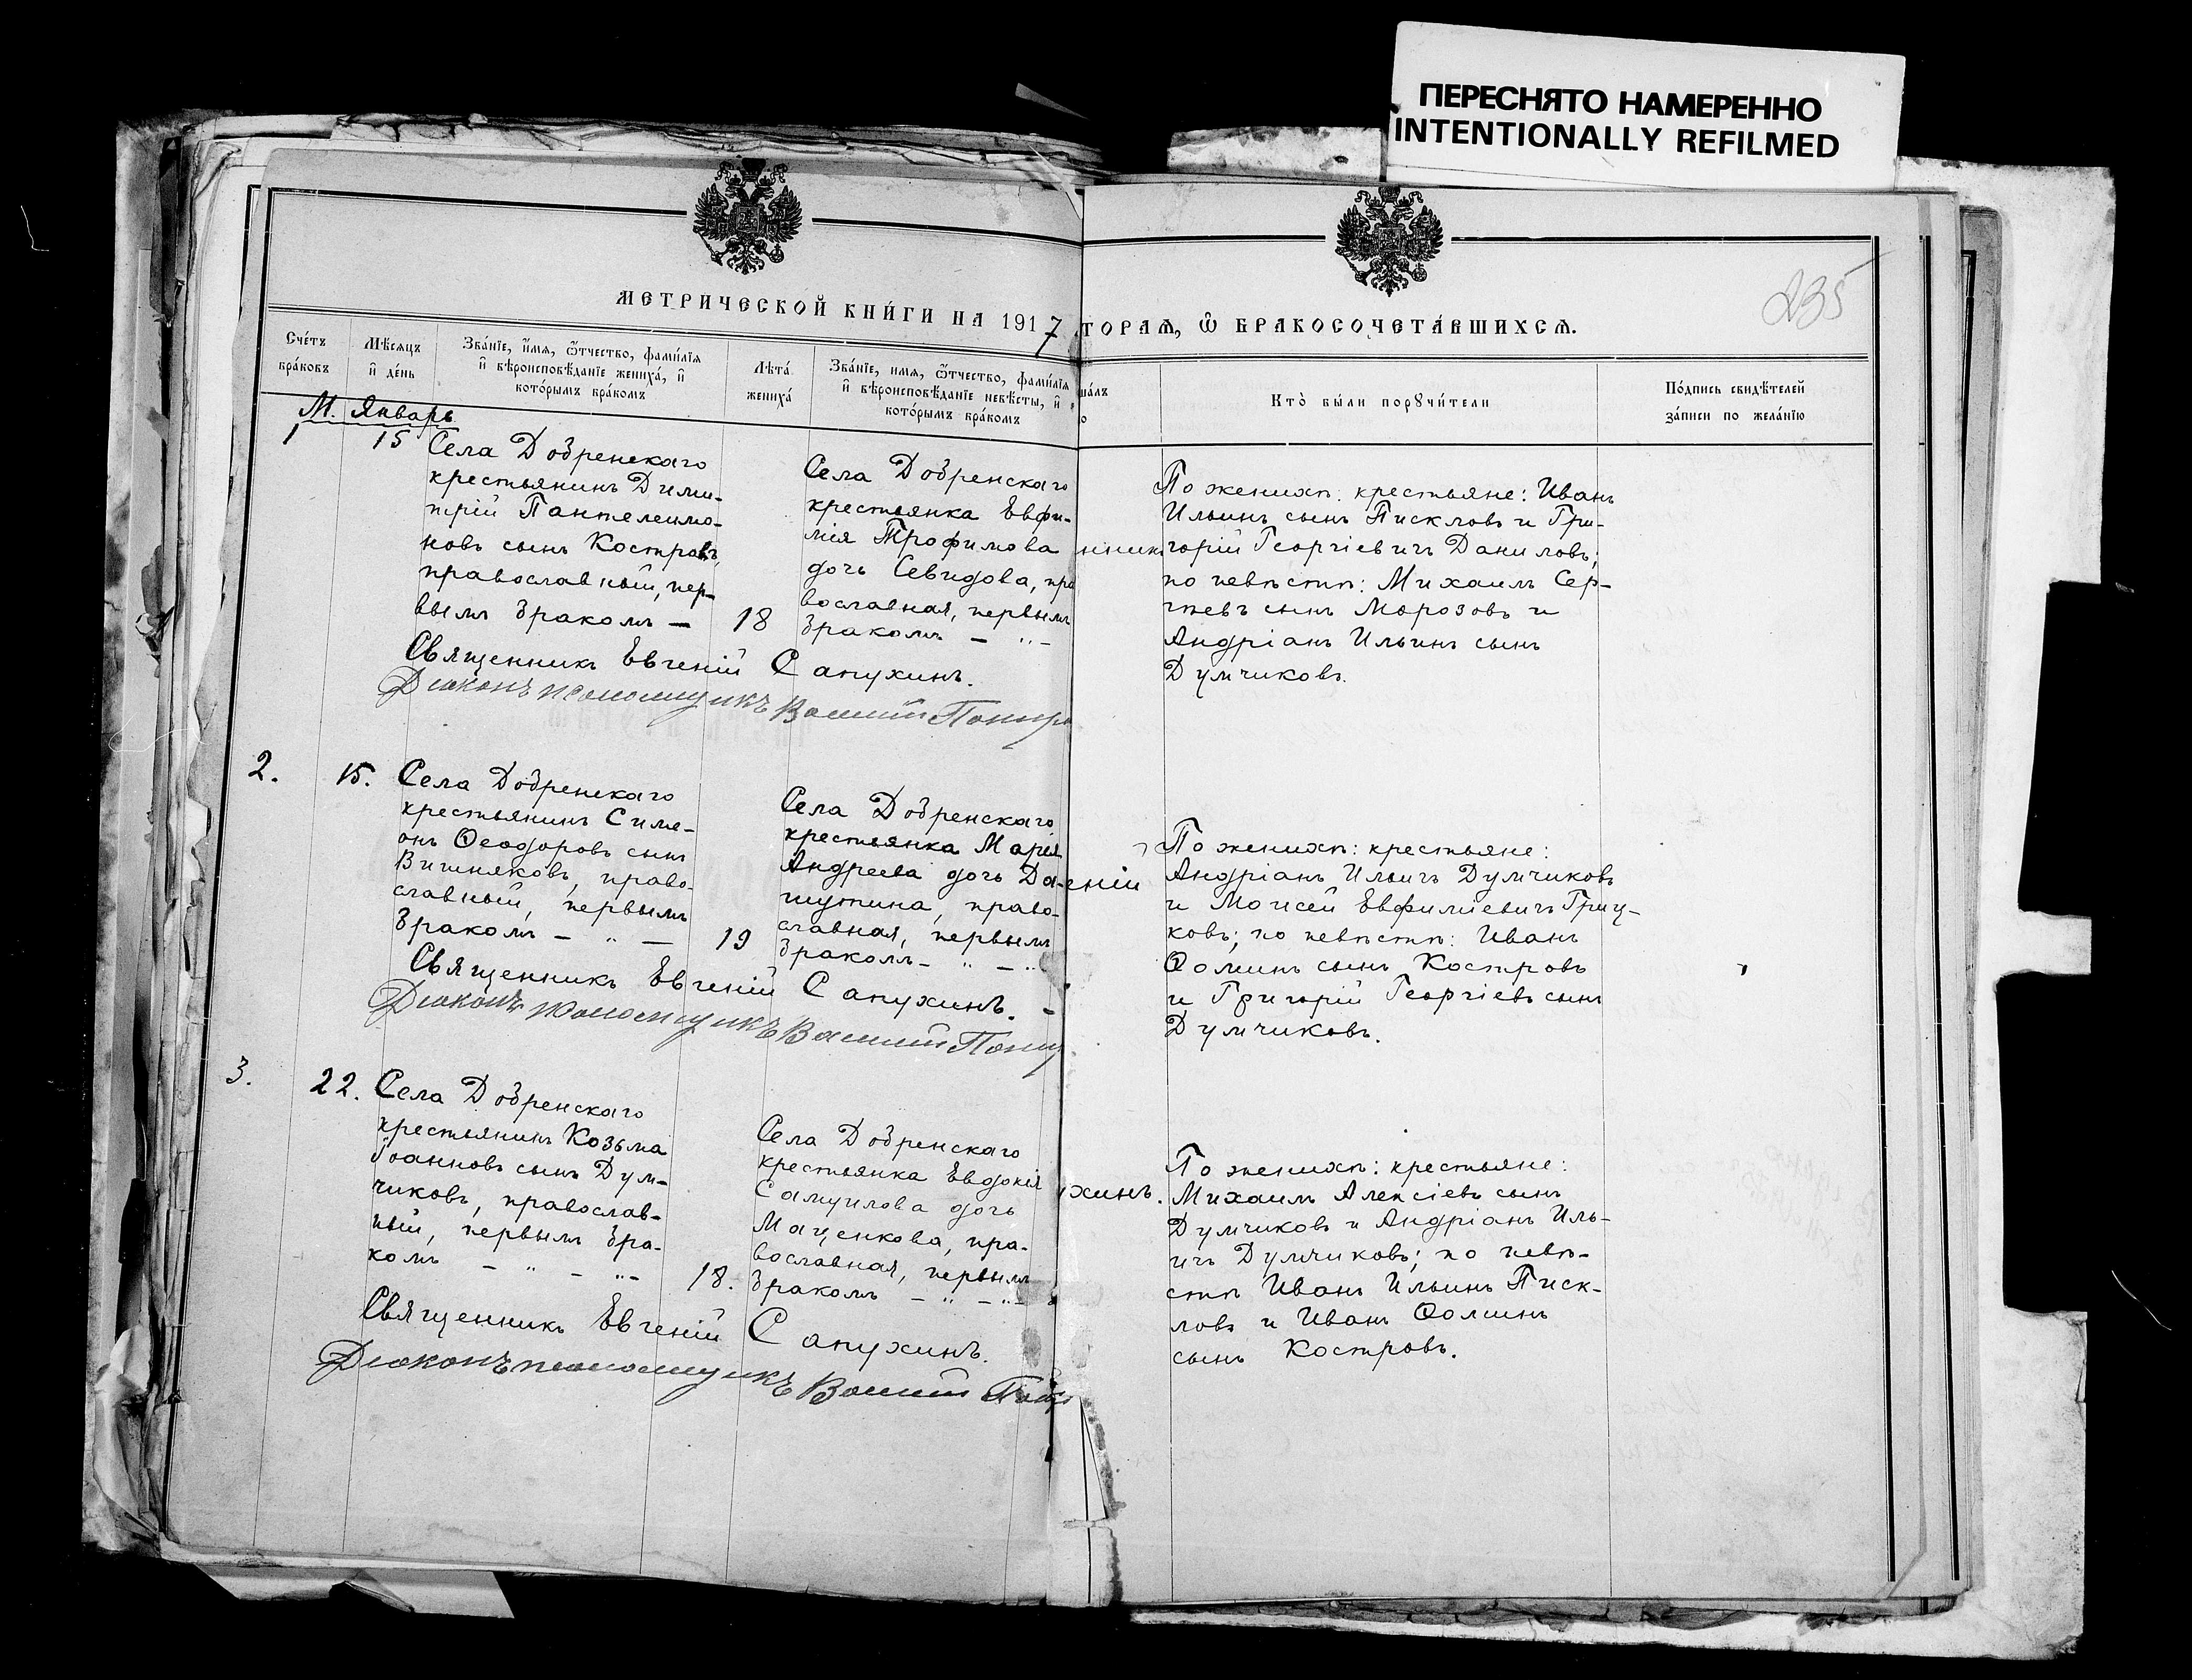 ПЕРЕСНЯТО НАМЕРЕННО
INTENTIONALLY REFILMED
235
МЕТРИЧЕСКОЙ КНИ́ГИ НА 1917
ТОРАѦ, Ѿ БРАКОСОЧЕТА́ВШИХСѦ.
Сче́тъ
бра́ковъ
Мѣ́сяцъ
и҆ де́нь
Зва́нїе, и҆́мя, ѻ҆́тчество, фами́лїя
и҆ вѣроисповѣ́данїе жениха̀, и҆
кото́рымъ бра́комъ
Лѣ́та
жениха̀
Зва́нїе, имя, ѻ҆́тчество, фами́лїя
и҆ вѣроисповѣ́данїе невѣ́сты, и҆
кото́рымъ бра́комъ
Кто̀ бы́ли порꙋчи́тели
По́дпись свидѣ́телей
за́писи по жела́нїю
М. Январь
1
15
Села Добренскаго
крестьянинъ Дими-
трій Пантелеимо-
новъ сынъ Костровъ,
православный, пер-
вымъ бракомъ —
18
Села Добренскаго
крестьянка Евфи-
мія Трофимова
дочь Севидова, пра
вославная, первымъ
бракомъ — „ —
По женихѣ: крестьяне: Иванъ
Ильинъ сынъПисковъ и Гри-
горій Георгіевичъ Даниловъ;
по невѣстѣ: Михаилъ Сер-
гѣевъ сынъ Морозовъ и
Андріанъ Ильинъ сынъ
Думчиковъ.
Священникъ Евгеній Сапухинъ.
Діаконъ псаломщикъ Василій
2.
15.
Села Добренскаго
крестьянинъ Симе-
онъ Ѳеодоровъ сынъ
Вишняковъ, право-
славный, первымъ
бракомъ — „ —
19
Села Добренскаго
крестьянка Марія
Андреева дочь Да-
шутина, право-
славная, первымъ
бракомъ — „ — „
еніи
По женихѣ: крестьяне:
Андріанъ Ильичъ Думчиковъ
и Моисей Евфиміевичъ Гриц-
ковъ; по невѣстѣ: Иванъ
Ѳоминъ сынъ Костровъ
и Григорій Георгіевъ сынъ
Думчиковъ.
Священникъ Евгеній Сапухинъ. —
Діаконъ псаломщикъ Василій
3.
22.
Села Добренскаго
крестьянинъ Козьма
Іоанновъ сынъ Дум-
чиковъ, православ-
ный, первымъ бра-
комъ — „ — „ —
18.
Села Добренскаго
крестьянка Евдокія
Самуилова дочь
Маценкова, пра-
вославная, первымъ
бракомъ — „ — „ —
хинъ.
По женихѣ: крестьяне:
Михаилъ Алексіевъ сынъ
Думчиковъ и Андріанъ Иль-
ичъ Думчиковъ; по невѣ-
стѣ Иванъ Ильинъ Писк-
ловъ и Иванъ Ѳоминъ
сынъ Костровъ.
Священникъ Евгеній Сапухинъ.
Діаконъ псаломщикъ Василій